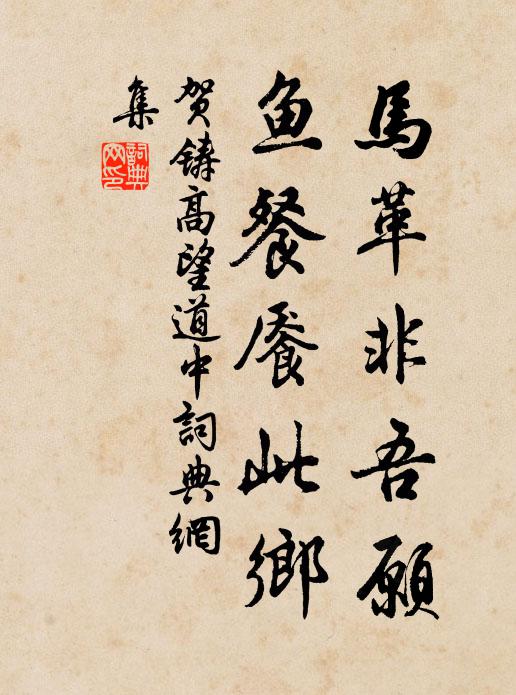 馬革非吾願
鱼餐饜此鄉
贺鑄高望道中詞典網
集
詞典
网印